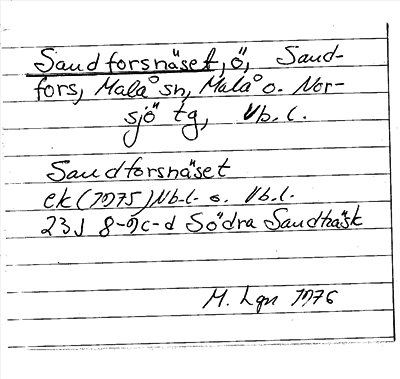 Sandforsnäset, ö, Sand-
fors, Malå sn, Malå o. Nor-
sjö tg, Vb. l.
Sandforsnäset
ek (1975) Nb.l. o. Vb.l.
23J 8-9c-d Södra Sandträsk
M. Lgn 1976